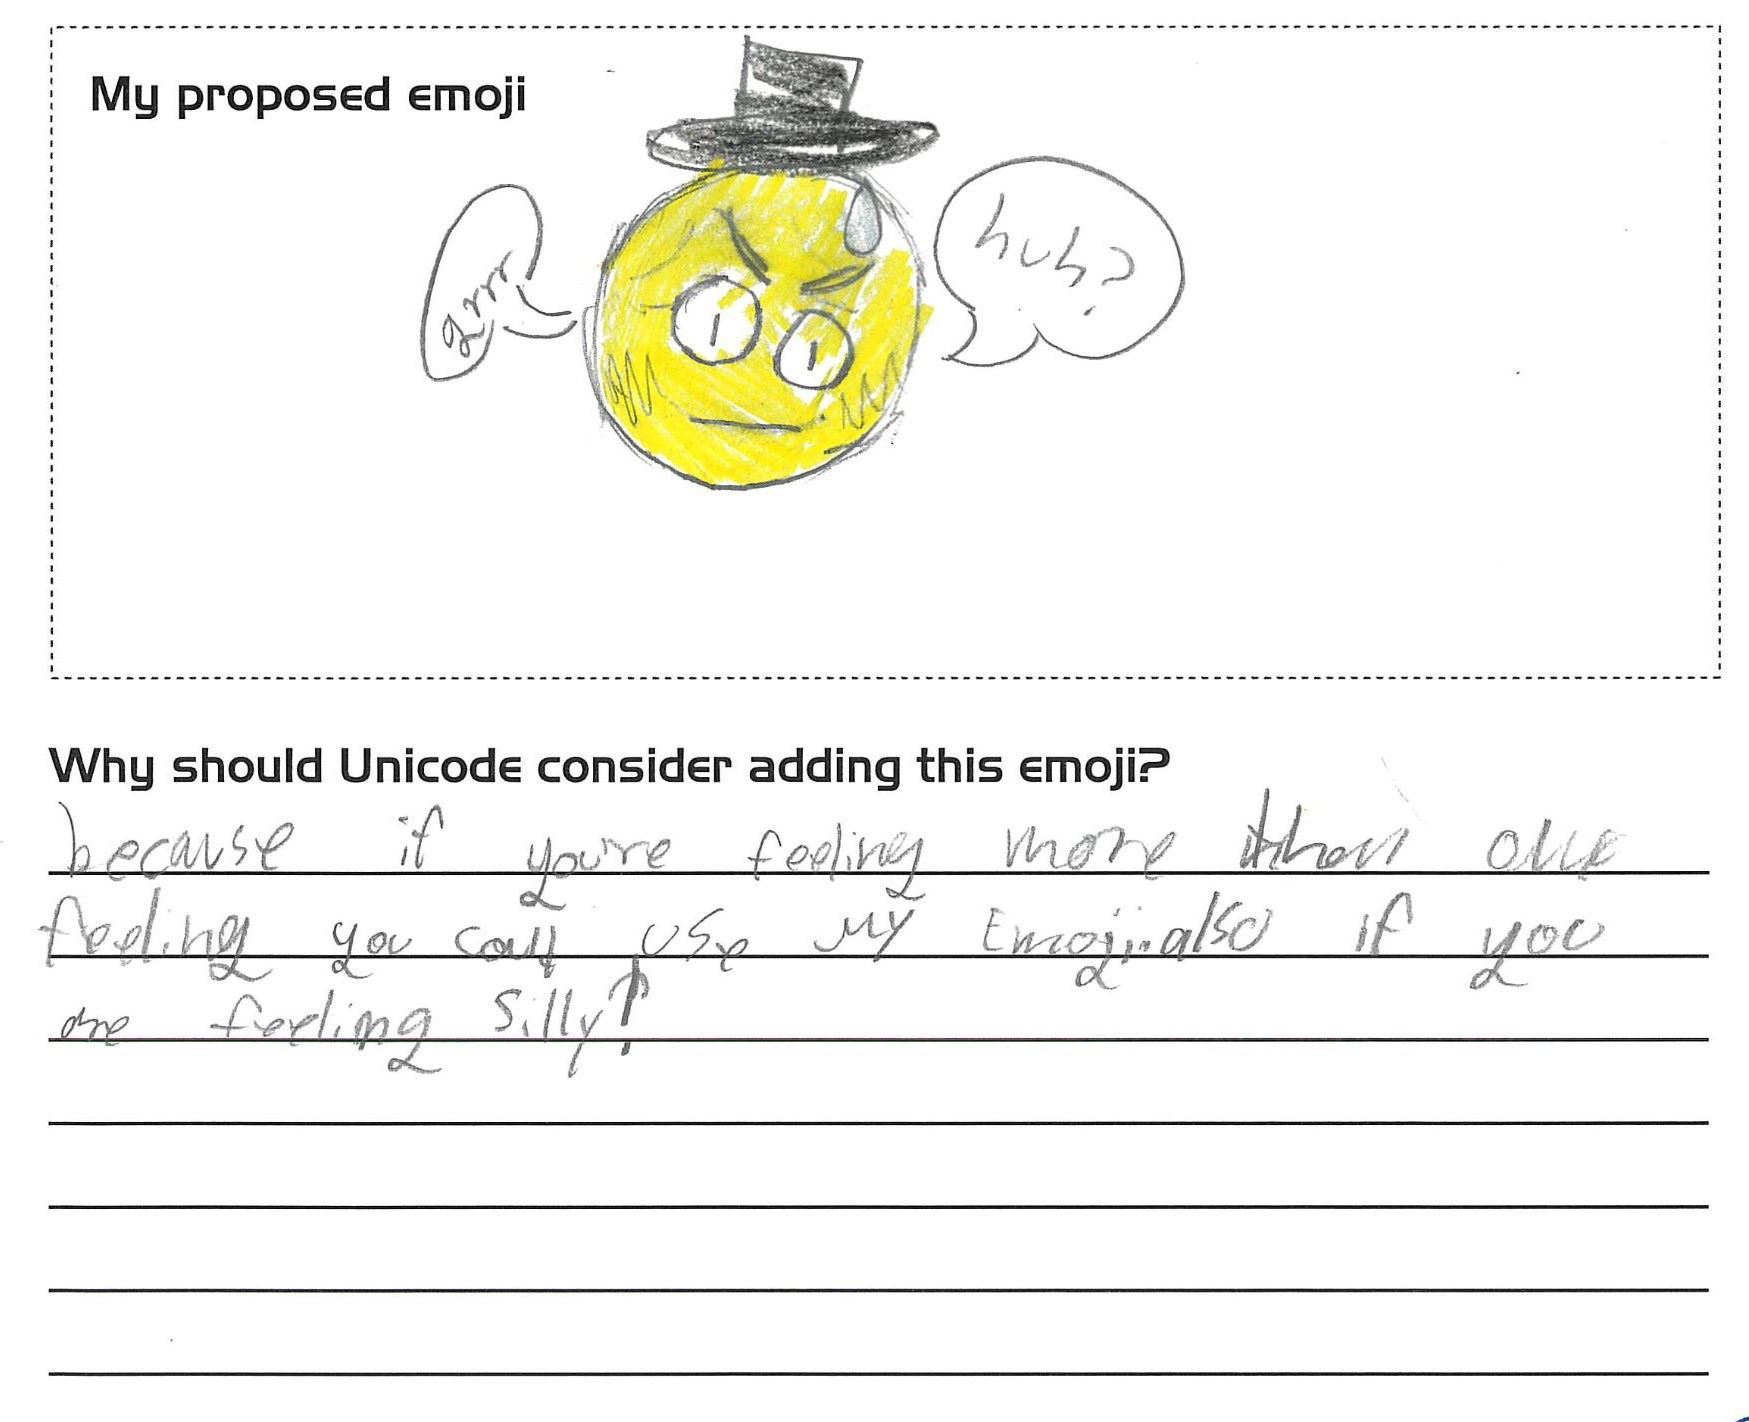 My proposed emoji
grrr
huh?
Why should Unicode consider adding this emoji?
because if you're feeling more than one
feeling you can use my Emoji. also if you
are feeling silly!